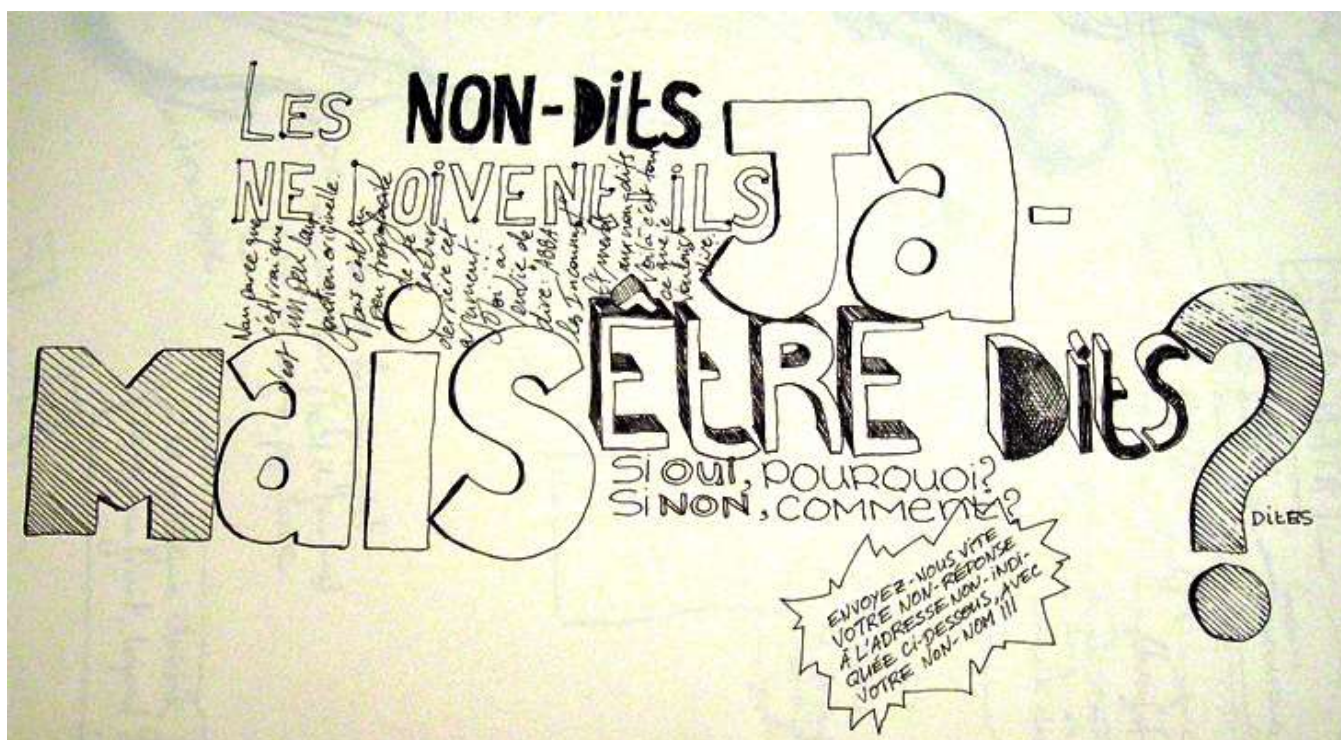 LES NON-DitS
NE DOIVENT-ILS JA-
MaiS ÊtRE DitS?
Non parce que
c'est vrai que
c'est un peu leur
fonction originelle.
Mais c'est un
peu trop facile
de se
cacher
derrière cet
argument.
envie de
dire : ABBA
les Inconnus
Et merde
aux non-dits
Voilà c'est tout
ce que je
voulais
dire.
Si OUI, POURQUOi?
Si NON, COMMENt?
DitES
ENVOYEZ-NOUS VITE
VOTRE NON-RÉPONSE
À L'ADRESSE NON-INDI-
QUÉE Ci-DESSOUS, AVEC
VOTRE NON-NOM !!!